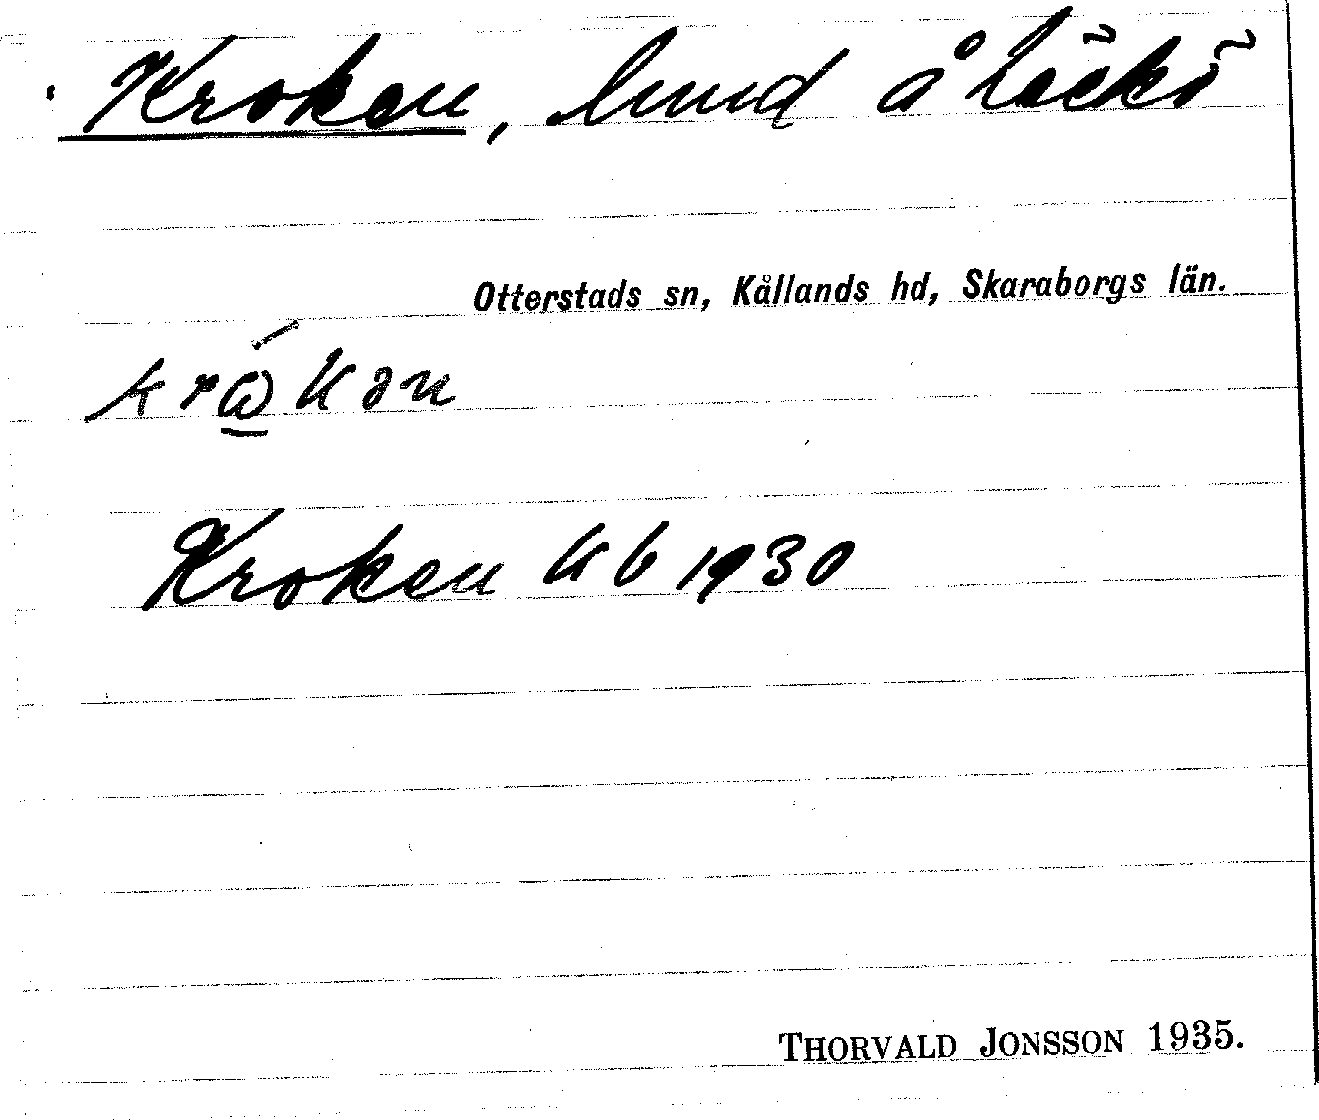 Kroken, lund å Läckö
Otterstads sn, Kållands hd, Skaraborgs län.
Kroken Ub 1930
THORVALD JONSSON 1935.